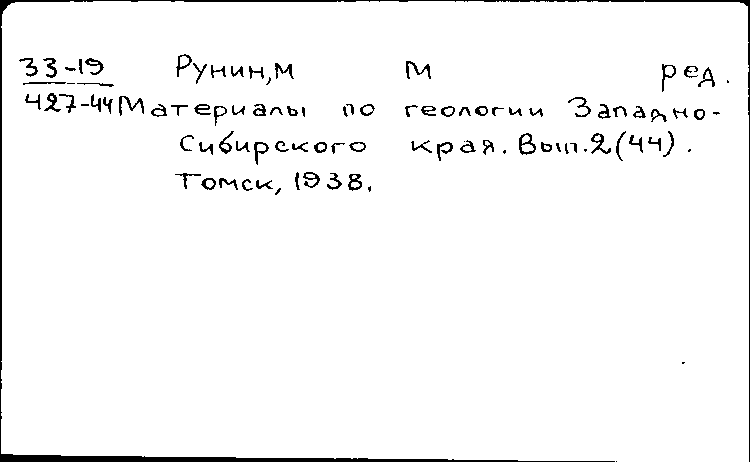 33-19 Рунин,м м ред.
427-44 Материалы по геологии Западно-
Сибирского края. Вып.2(44).
Томск, 1938.